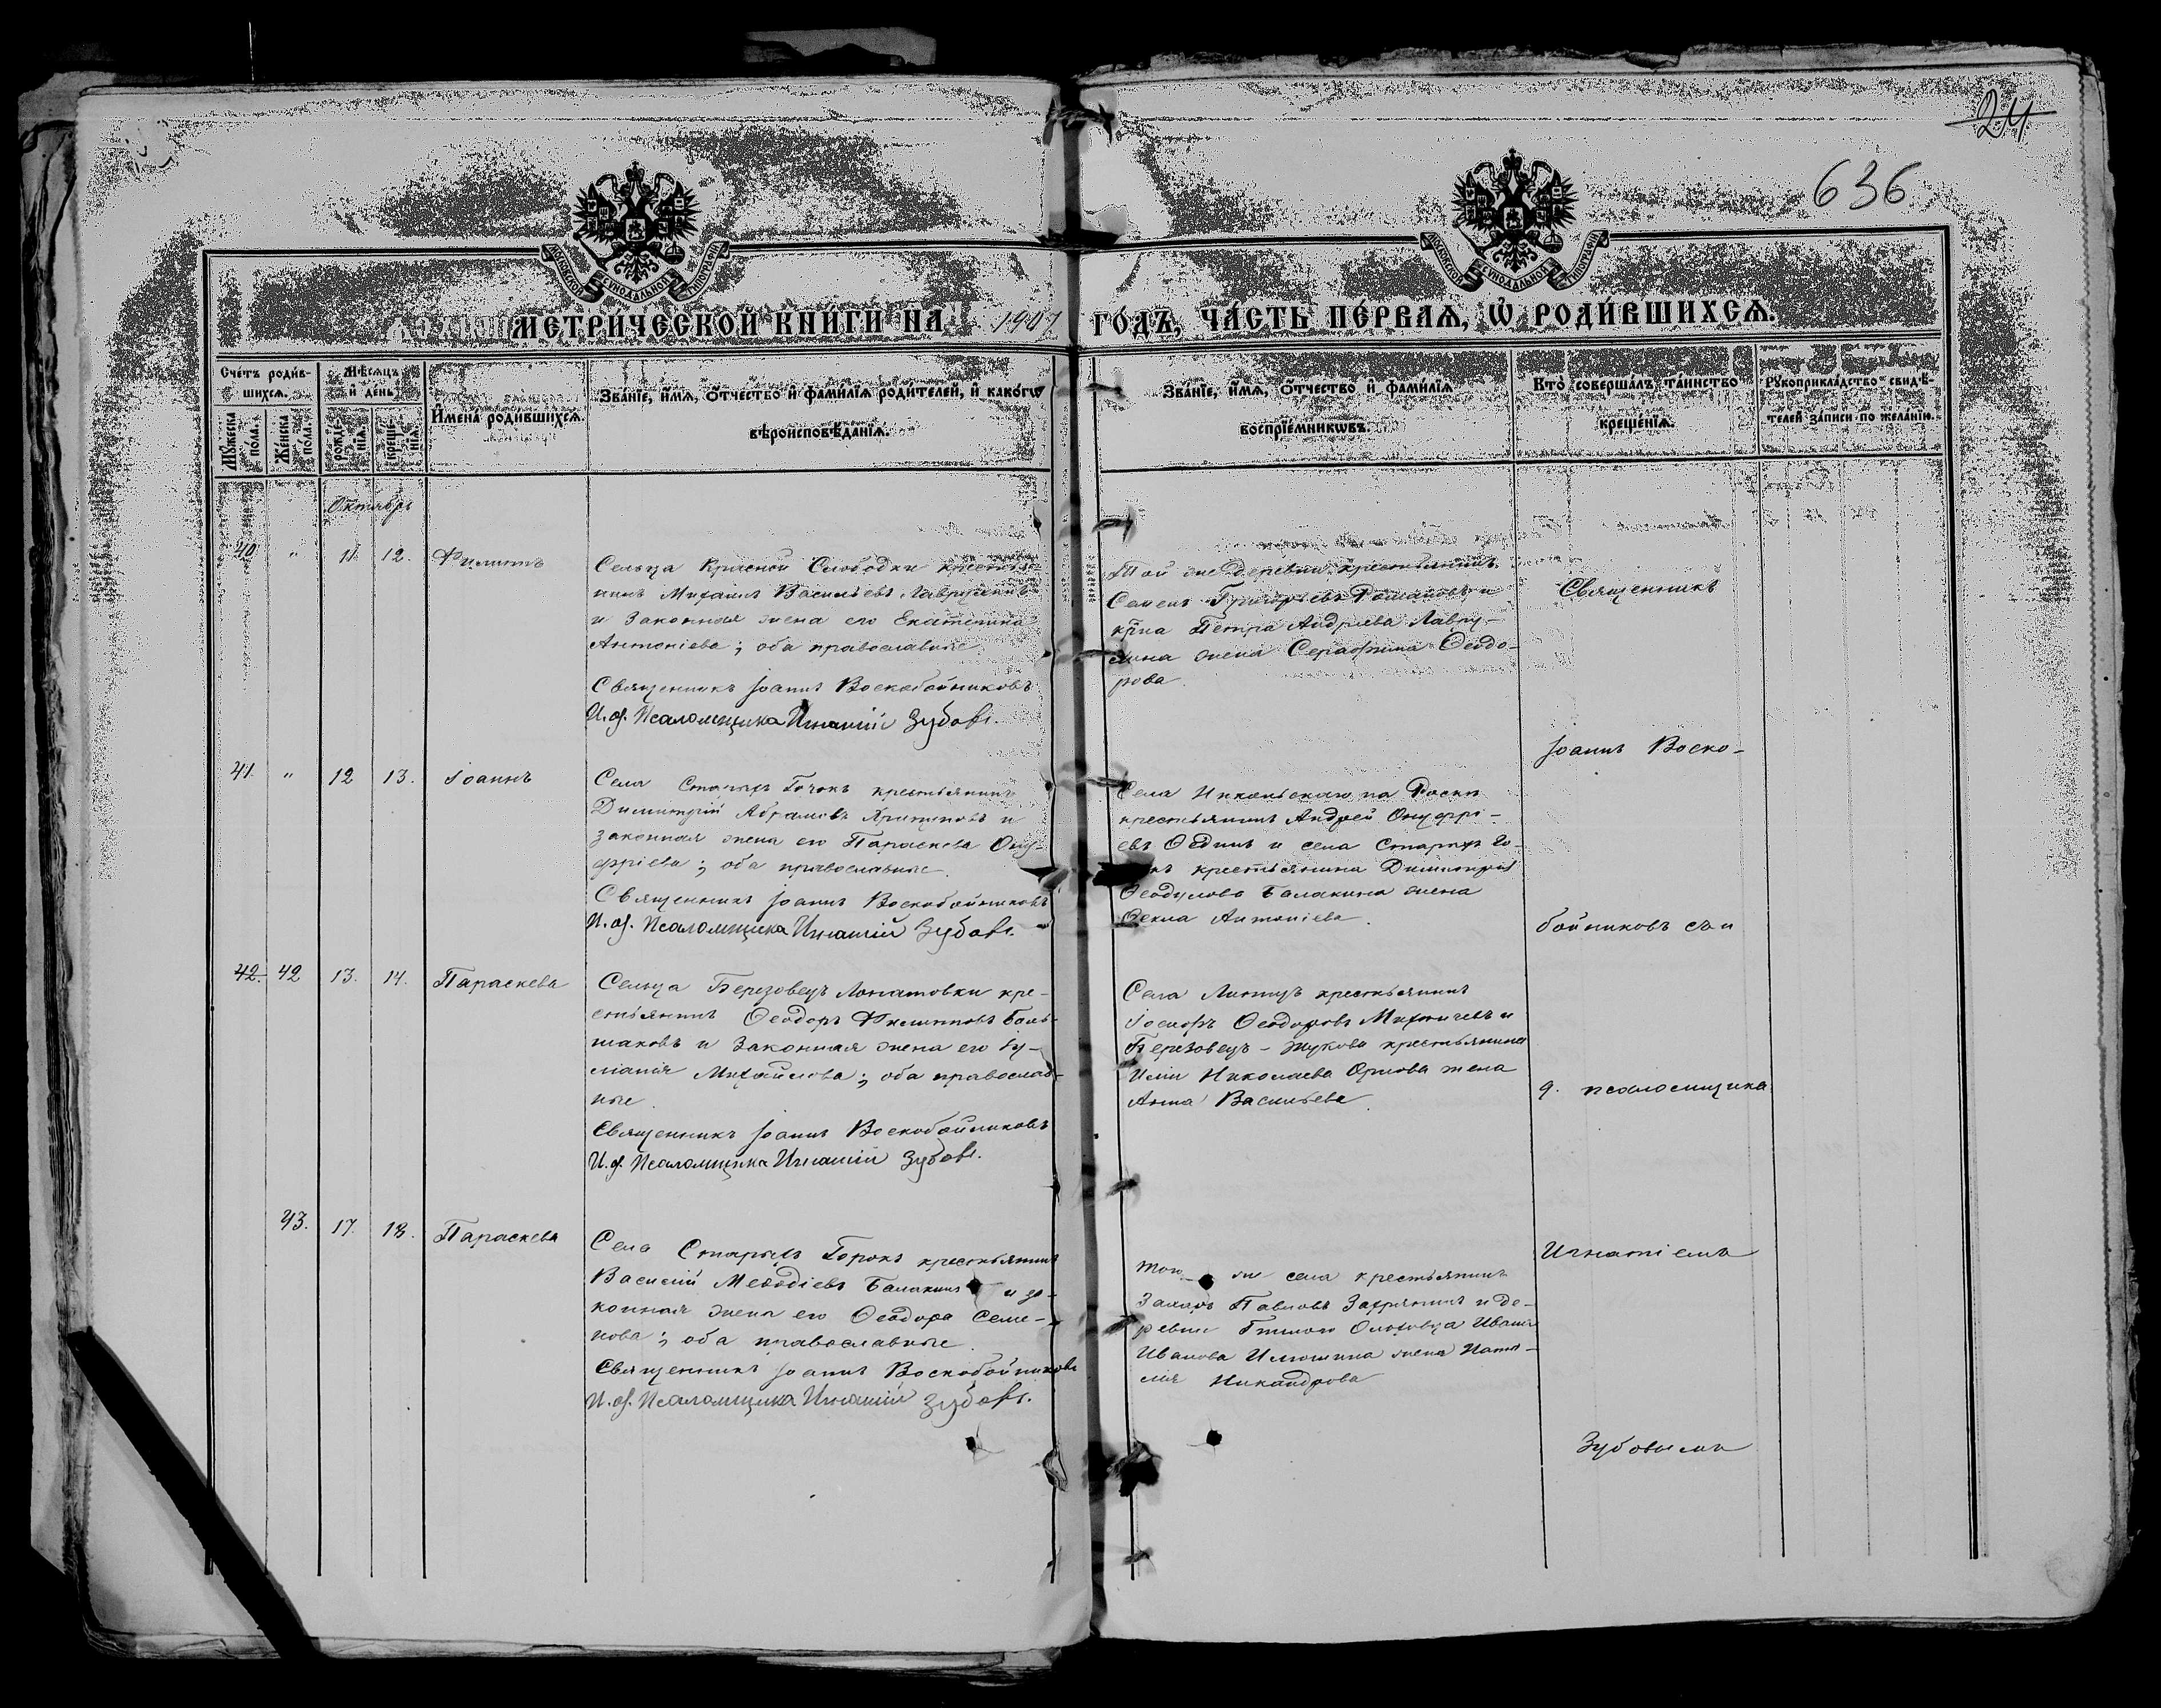 24
636
МОСКОВСКОЙ СѴНОДАЛЬНОЙ ТИПОГРАФІИ
МОСКОВСКОЙ СѴНОДАЛЬНОЙ ТИПОГРАФІИ
МЕТРИ́ЧЕСКОЙ КНИ́ГИ НА 1907 ГО́ДЪ, ЧА́СТЬ ПЕ́РВАѦ, Ѡ҆ РОДИ́ВШИХСѦ.
Сче́тъ роди́в-
шихсѧ.
Мꙋ́жеска пола.
Же́нска пола.
Мѣ́сѧцъ
и҆ де́нь
рожде́-
нїѧ.
креще́-
нїѧ.
И҆мена̀ роди́вшихсѧ.
Зва́нїе, и҆́мѧ, ѻ҆́тчество и҆ фами́лїѧ роди́телей, и҆ како́гѡ
вѣроисповѣ́данїѧ.
Зва́нїе, и҆́мѧ, ѻ҆́тчество и҆ фами́лїѧ
воспрїе́мникѡвъ.
Кто̀ соверша́лъ та́инство
креще́нїѧ.
Рꙋкоприкла́дство свидѣ́-
телей за́писи по жела́нїю.
Октябрь
40. " 11. 12. Филиппъ
Сельца Красной Слободки крестья-
нинъ Михаилъ Васильевъ Лаврушинъ
и законная жена его Екатерина
Антоніева; оба православные.
Священникъ Іоаннъ Воскобойниковъ
И. об. Псаломщика Игнатій Зубовъ.
Той же деревни крестьянинъ
Семенъ Григорьевъ Романовъ и
кр-на Петра Андреева Лавру-
шина жена Серафима Ѳеодо-
рова.
Священникъ
Іоаннъ Воско-
41. " 12 13. Іоаннъ
Села Старыхъ Горокъ крестьянинъ
Димитрій Абрамовъ и
законная жена его Параскева Ону-
фріева; оба православные.
Священникъ Іоаннъ Воскобойниковъ
И. об. Псаломщика Игнатій Зубовъ.
Села Никольскаго на
крестьянинъ Андрей Онуфрі-
евъ и села Старыхъ Го-
рокъ крестьянина Димитрія
Ѳеодулова Балакина жена
Ѳекла Антоніева.
бойниковъ съ и
42. 42 13. 14. Параскева
Сельца Березовецъ кре-
стьянинъ Ѳеодоръ Филипповъ Боль-
шаковъ и законная жена его Іу-
ліанія Михайлова; оба православ-
ные.
Священникъ Іоаннъ Воскобойниковъ
И. об. Псаломщика Игнатій Зубовъ.
Села крестьянинъ
Іосифъ Ѳеодоровъ и
Березовецъ-Жукова крестьянина
Иліи Николаева Орлова жена
Анна Васильева.
д. псаломщика
43. 17. 18. Параскева
Села Старыхъ Горокъ крестьянинъ
Василій Меѳодіевъ Балакинъ и за-
конная жена его Ѳеодора Семе-
нова; оба православные.
Священникъ Іоаннъ Воскобойниковъ
И. об. Псаломщика Игнатій Зубовъ.
Игнатіемъ
Того же села крестьянинъ
Захаръ Павловъ и де-
ревни Ольховца Ивана
Иванова Илюшина жена Ната-
лія Никандрова
Зубовымъ